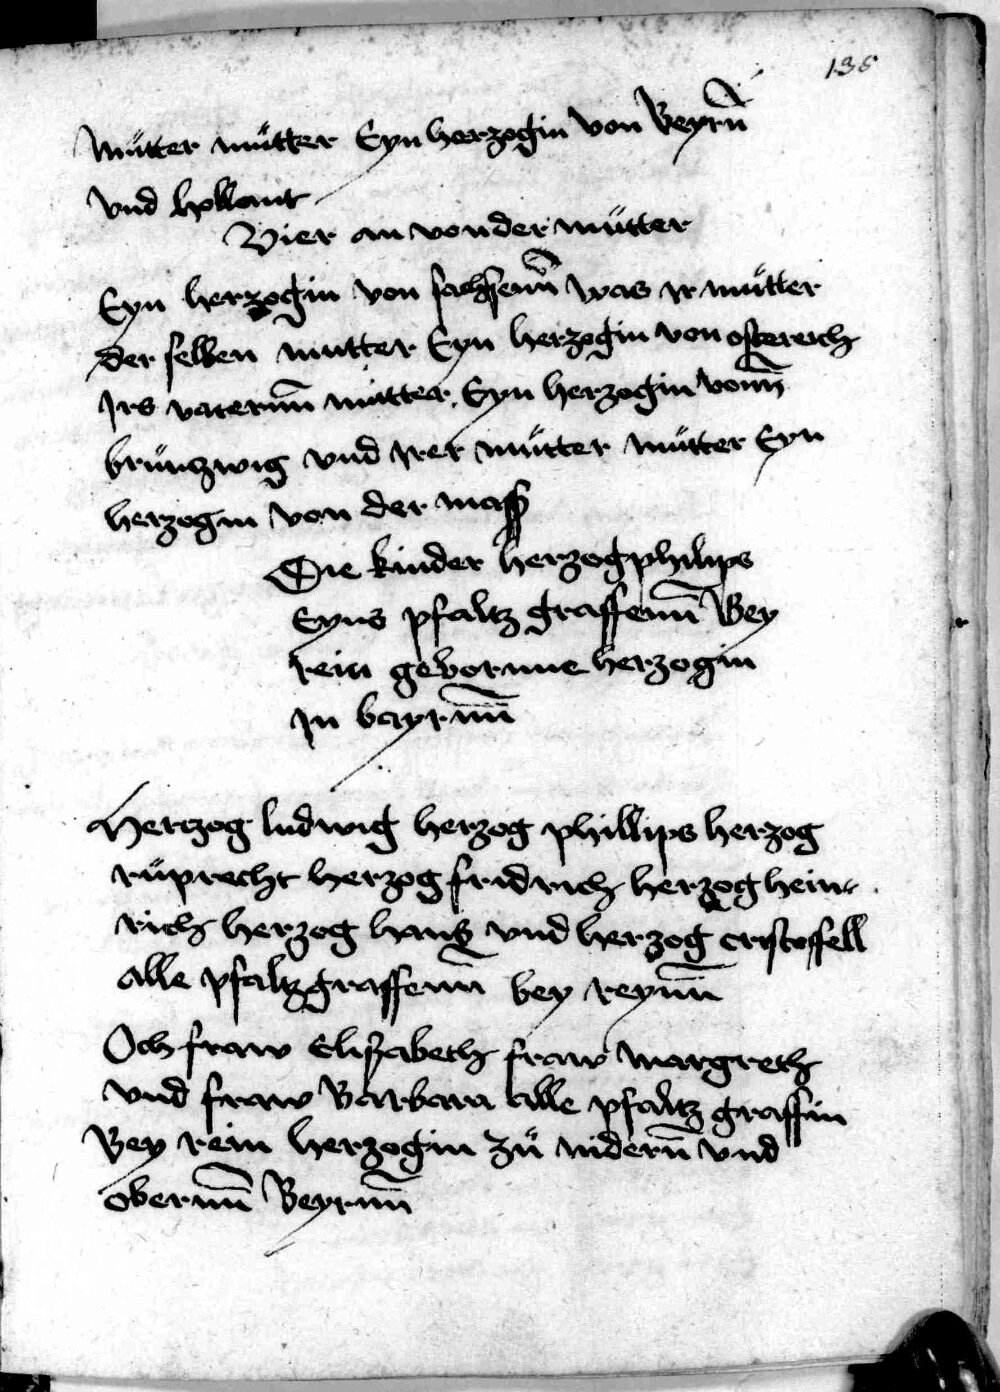 135
Mutter mutter Eyn herzogin von Beyrn
vnd hollant
Vier an von der mutter
Eyn herzogin von sachssenn was Ir mutter
der selben mutter Eyn herzogin von osterich
Irs vaternn mutter Eyn herzogin vonn
brunszwig vnd Irer mutter mutter Eyn
herzogin von der mass
Die kinder herzog philips
Eyns pfaltz graffenn Bey
rein gebornne herzogin
In bayrnn
Hertzog ludwig herzog phillips herzog
ruprecht herzog fridrich herzog hein-
rich herzog hans vnd herzog cristoffell
alle pfaltzgraffenn bey reynn
Och fraw Elißabeth fraw margreth
vnd fraw Barbara alle pfaltz graffin
Bey rein herzogin zu nidern vnd
obernn Beyrnn